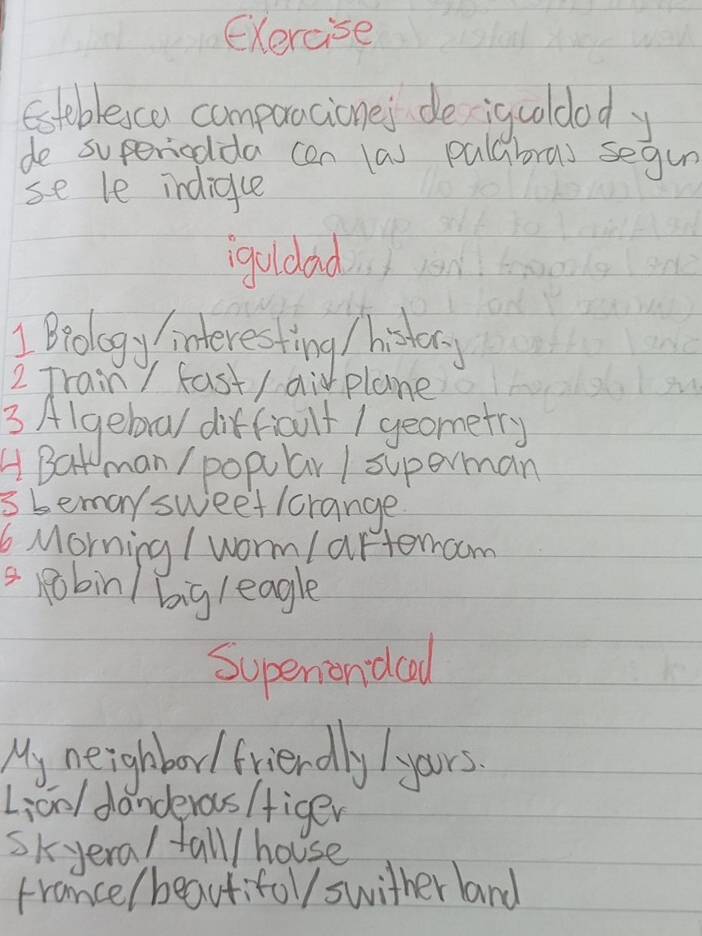 Exercise
Esteblesca comparaciones de igualdad y
de superiodida con las palabras segun
se le indique
iguldad
1 Biology/interesting/history
2 Train/ fast/ airplane
3 Algebra/ difficult / geometry
4 Batman/popular/superman
5 Lemon/sweet/orange
6 Morning/ worm/ afternoom
Robin/ big/eagle
Superioridad
My neighbor/friendly/yours.
Lion/danderous/tiger
Skyera/ tall/ house
france/beautiful/swither land